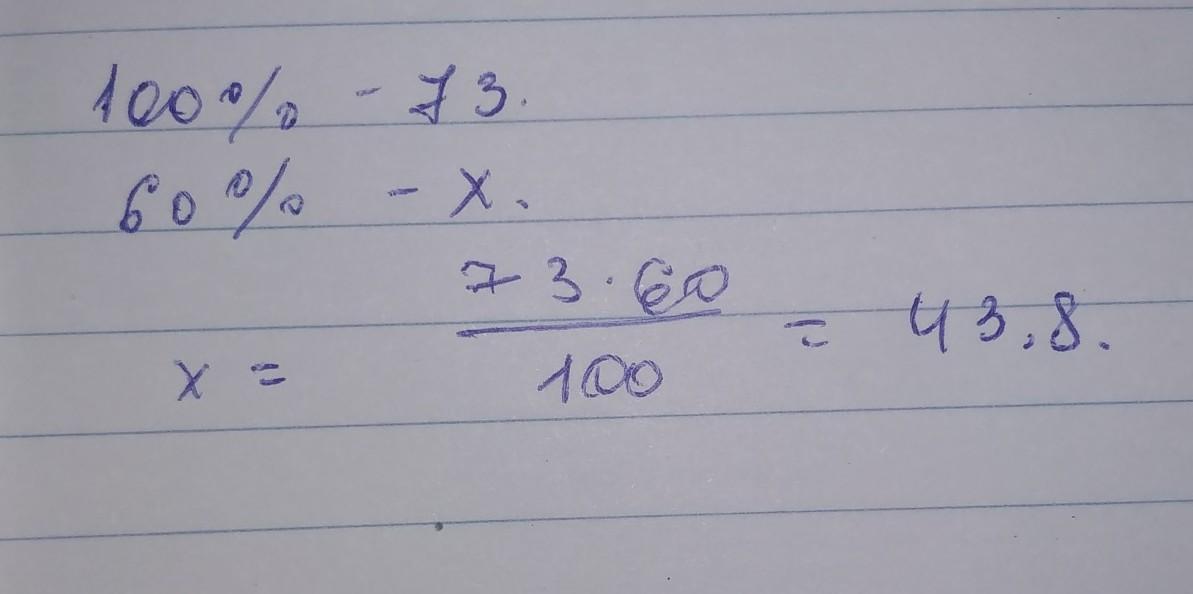 100% - 73.
60% - x.
x = 73·60/100 = 43.8.